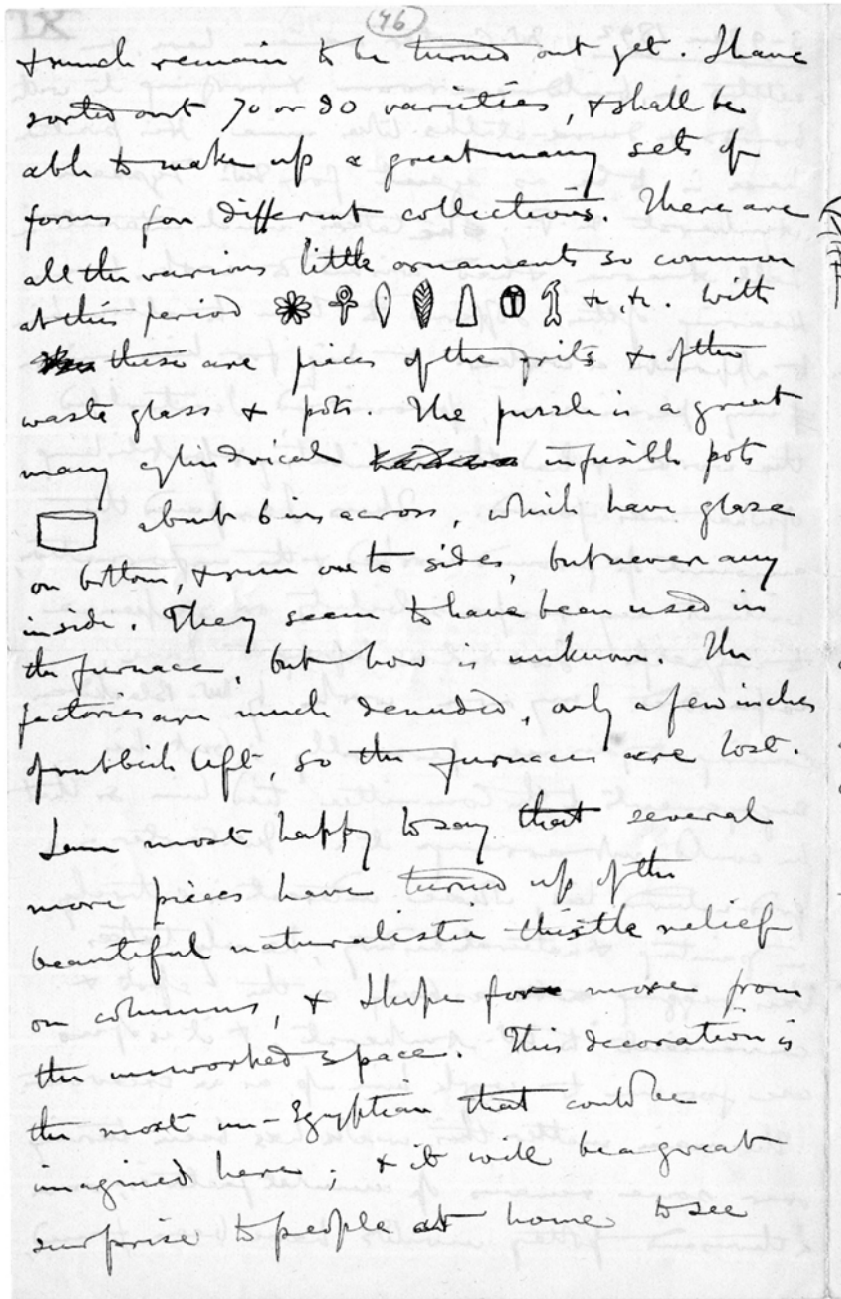 46
& much remain to be turned out yet. I have
sorted out 70 or 80 varieties, & shall be
able to make up a great many sets of
forms for different collections. There are
all the various little ornaments so common
at this period &c, &c. With
these are pieces of the frits & of the
waste glass & pots. The puzzle is a great
many cylindrical infusible pots
about 6 ins across, which have glaze
on bottom, & run on to sides, but never any
inside. They seem to have been used in
the furnace, but how is unknown. The
factories are much denuded, only a few inches
of rubbish left, so the furnaces are lost.
I am most happy to say that several
more pieces have turned up of the
beautiful naturalistic thistle relief
on columns, & I hope for more from
the unworked space. This decoration is
the most un-Egyptian that could be
imagined here; & it will be a great
surprise to people at home to see